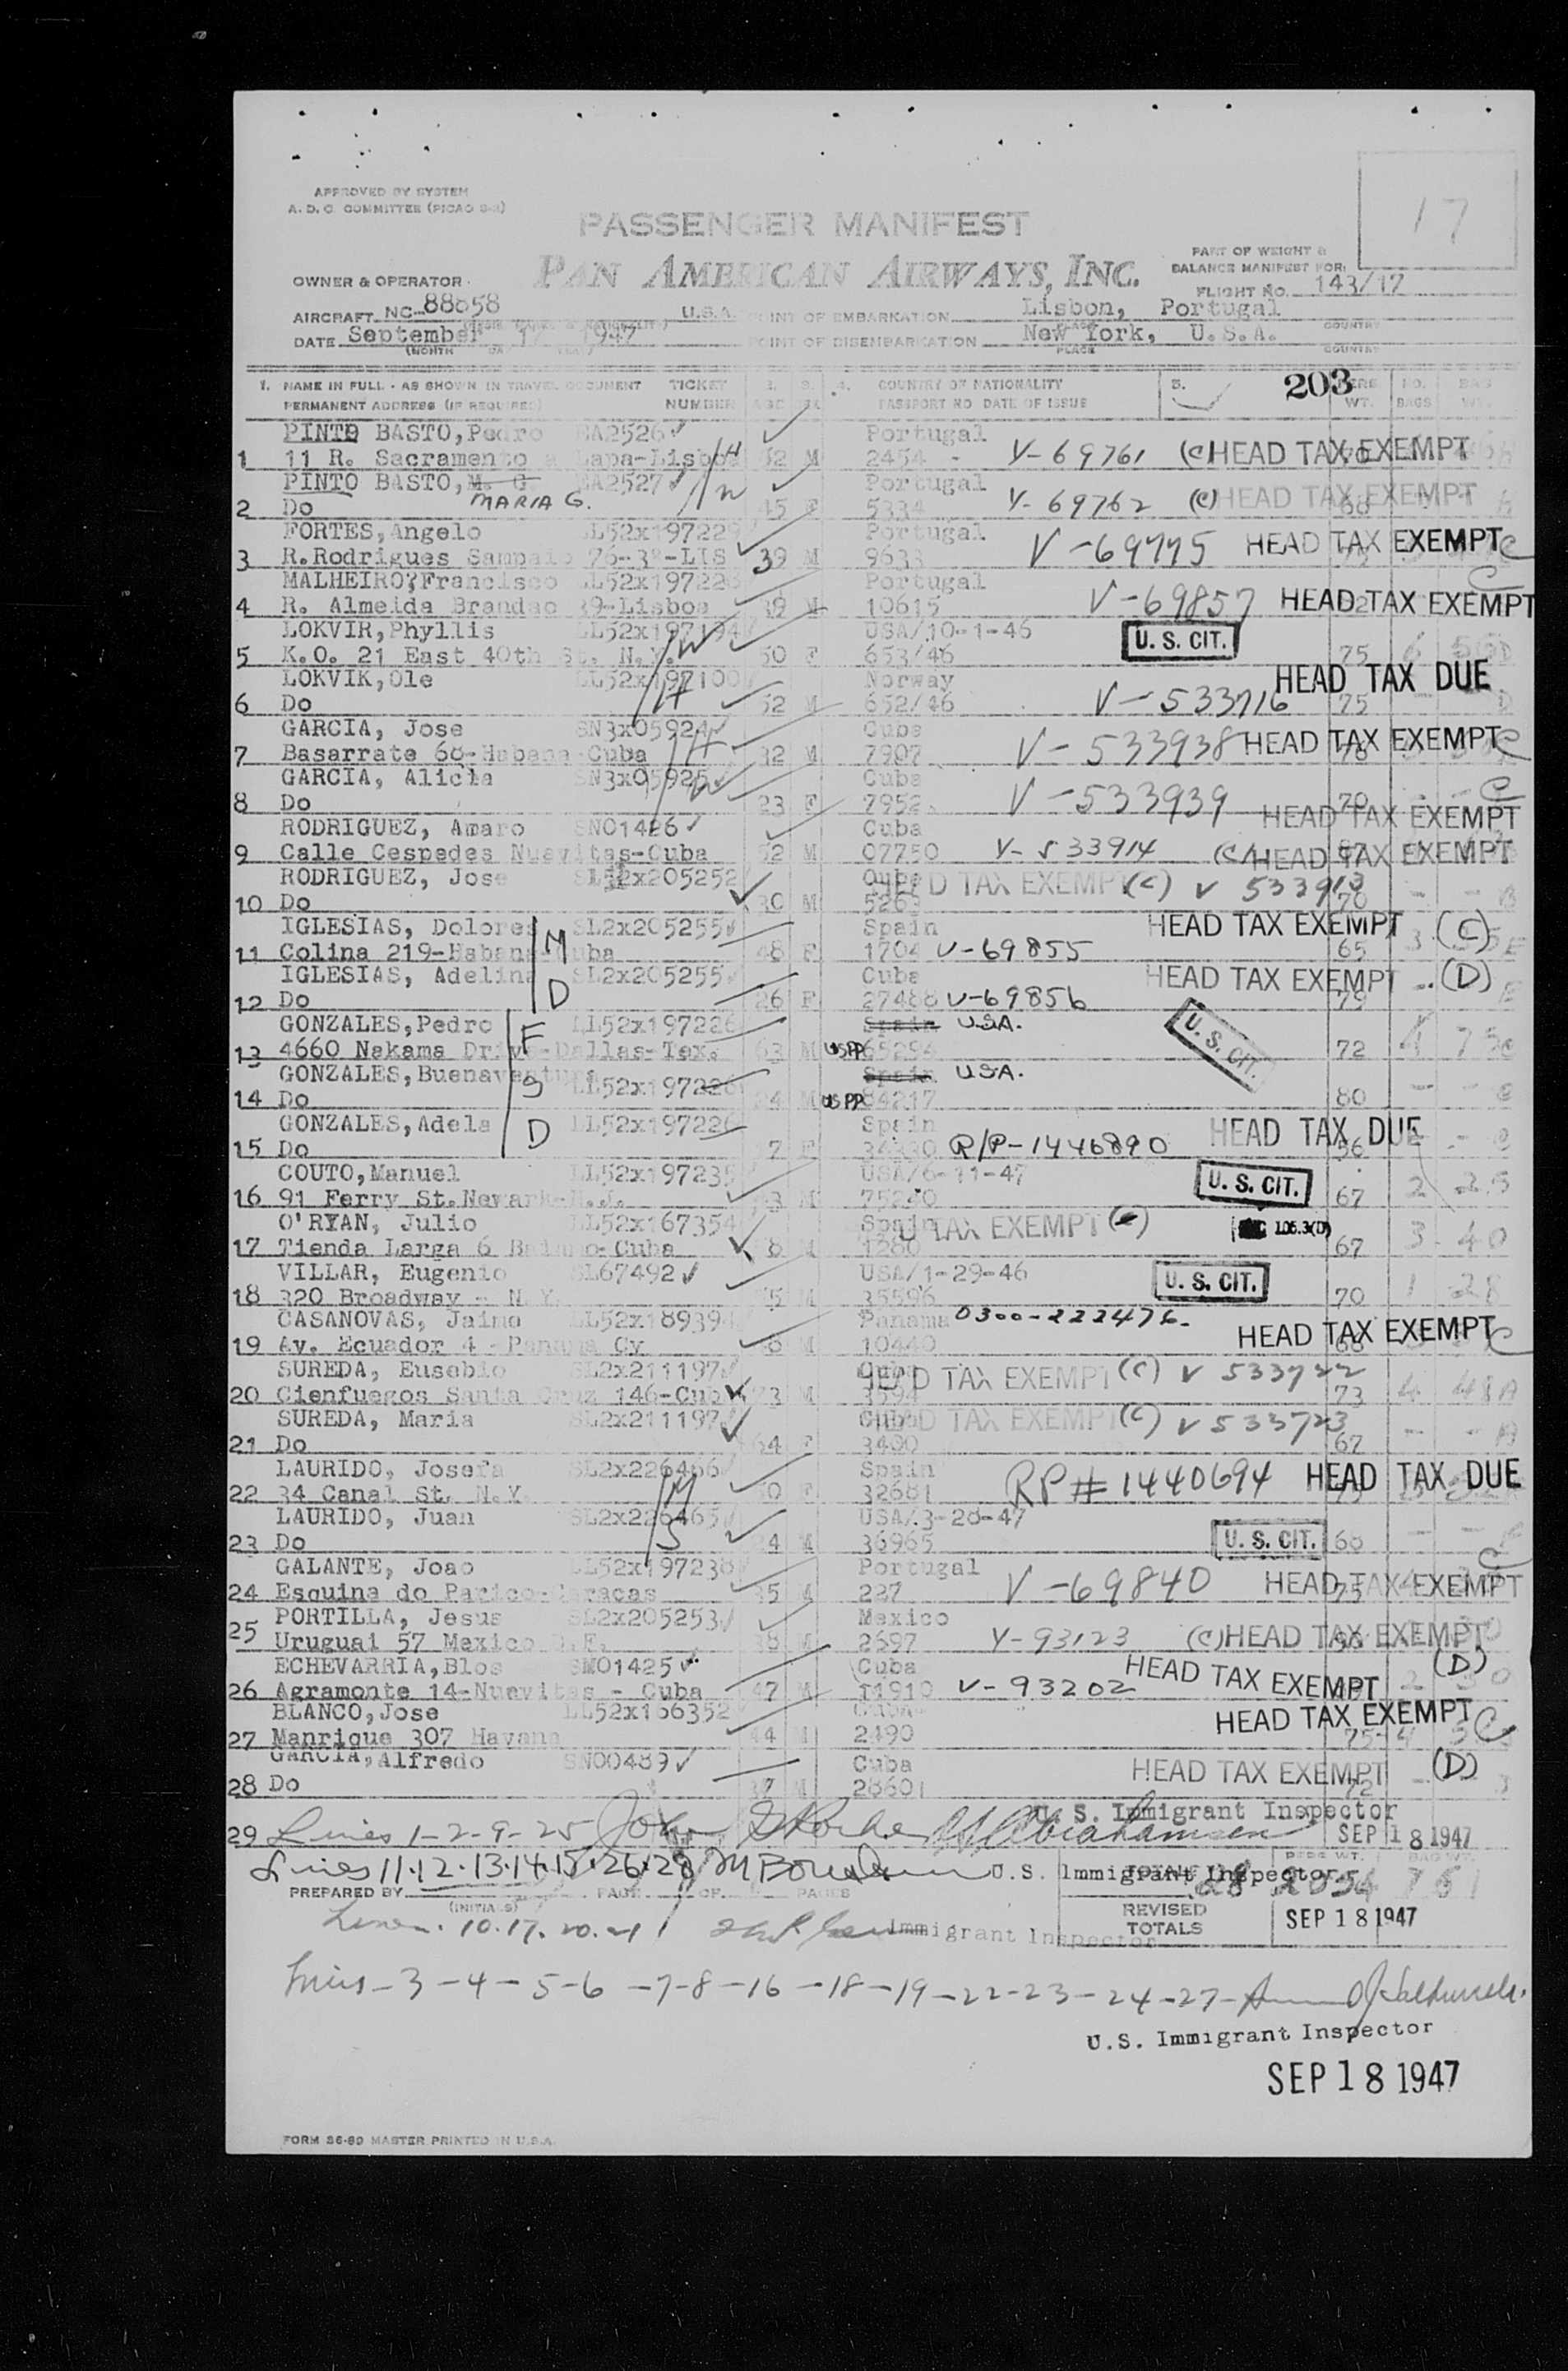 17
APPROVED BY SYSTEM
A. D. C. COMMITTEE (PICAO
PASSENGER MANIFEST
PART OF WEIGHT &
BALANCE MANIFEST FOR:
OWNER & OPERATOR
PAN AMERICAN AIRWAYS, INC.
FLIGHT NO. 143/17
AIRCRAFT NC-88858 U.S.A. POINT OF EMBARKATION Lisbon, Portugal
DATE September 17 1947 POINT OF DISEMBARKATION New York, U.S.A.
(MONTH PLACE COUNTRY
1. NAME IN FULL - AS SHOWN IN TRAVEL DOCUMENT TICKET 2. 3. 4. COUNTRY OF NATIONALITY 5. 203 PERS NO. BAG
PERMANENT ADDRESS (IF REQUIRED) NUMBER AGE SEX PASSPORT NO DATE OF ISSUE WT. BAGS WT.
PINTO BASTO, Pedro EA2526 Portugal
1 11 R. Sacramento a Lapa-Lisboa 52 M 2454 - V-69761 (C) HEAD TAX EXEMPT
PINTO BASTO, M. G EA2527 Portugal
2 Do MARIA G. 45 F 5334 V-69762 (C) HEAD TAX EXEMPT
FORTES, Angelo LL52x197229 Portugal
3 R.Rodrigues Sampaio 76-3º-LIS 39 M 9633 V-69775 HEAD TAX EXEMPT C
MALHEIRO, Francisco LL52x197228 Portugal
4 R. Almeida Brandao 39-Lisboa 39 M 10615 V-69857 HEAD TAX EXEMPT C
LOKVIR, Phyllis LL52x197194 W USA/10-1-46
5 K.O. 21 East 40th St. N.Y. 50 F 653/46 U. S. CIT. 75
LOKVIK, Ole LL52x197100 Norway HEAD TAX DUE
6 Do H 52 M 652/46 V-533716 75
GARCIA, Jose SN3x05924 Cuba
7 Basarrate 68-Habana-Cuba H 32 M 7907 V-533938 HEAD TAX EXEMPT C
GARCIA, Alicia SN3x05925 W Cuba
8 Do 23 F 7952 V-533939 70 HEAD TAX EXEMPT C
RODRIGUEZ, Amaro SN01426 Cuba
9 Calle Cespedes Nuevitas-Cuba 52 M 07750 V-533914 (C) HEAD TAX EXEMPT
RODRIGUEZ, Jose SL2x205252 Cuba HEAD TAX EXEMPT (C) V 533913
10 Do 30 M 5263 70 - - B
IGLESIAS, Dolores M SL2x205255 Spain HEAD TAX EXEMPT (C)
11 Colina 219-Habana-Cuba 48 F 1704 V-69855 65 3
IGLESIAS, Adelina D SL2x205255 Cuba HEAD TAX EXEMPT (D)
12 Do 26 F 27488 V-69856 79
GONZALES, Pedro F LL52x197226 Spain USA.
13 4660 Nakama Drive-Dallas-Tex. 63 M USPP 65294 U. S. CIT. 72
GONZALES, Buenaventura S LL52x197226 Spain USA.
14 Do 24 M US PP 84217 80 - -
GONZALES, Adela D LL52x197226 Spain HEAD TAX DUE
15 Do F R/P-1446890 56
COUTO, Manuel LL52x197235 USA/6-11-47
16 91 Ferry St. Newark-N.J. 43 M 75240 U. S. CIT. 67 2 25
O'RYAN, Julio LL52x167354 Spain HEAD TAX EXEMPT
17 Tienda Larga 6 Cuba M 1280 67 3 40
VILLAR, Eugenio SL67492 USA/1-29-46
18 320 Broadway - N.Y. M 35596 U. S. CIT. 70 1 28
CASANOVAS, Jaime LL52x18939 Panama 0300-222476
19 Av. Ecuador 4 - Panama Cy M 10440 HEAD TAX EXEMPT C
SUREDA, Eusebio SL2x211197 Cuba HEAD TAX EXEMPT (C) V 533722
20 Cienfuegos Santa Cruz 146-Cuba 73 M 3594 73 4 48A
SUREDA, Maria SL2x211197 Cuba HEAD TAX EXEMPT (C) V 533723
21 Do 64 F 3400 67 - - A
LAURIDO, Josefa SL2x226466 Spain
22 34 Canal St. N.Y. M F 32681 RP# 1440694 HEAD TAX DUE
LAURIDO, Juan SL2x226465 USA/3-28-47
23 Do S 24 M 36965 U. S. CIT. 68
GALANTE, Joao LL52x197238 Portugal
24 Esquina do Parico-Caracas 35 M 227 V-69840 HEAD TAX EXEMPT C
PORTILLA, Jesus SL2x205253 Mexico
25 Uruguai 57 Mexico D.F. 38 M 2697 V-93123 (C) HEAD TAX EXEMPT
ECHEVARRIA, Blos SM01425 Cuba HEAD TAX EXEMPT (D)
26 Agramonte 14-Nuevitas - Cuba 47 M 11910 V-93202
BLANCO, Jose LL52x166352 Cuba HEAD TAX EXEMPT C
27 Manrique 307 Havana 44 M 2490 75
GARCIA, Alfredo SN00489 Cuba HEAD TAX EXEMPT (D)
28 Do 37 M 28601 72
U. S. Immigrant Inspector
29 Lines 1-2-9-25 SEP 18 1947
Lines 11.12.13.14.15.26.28 U.S. Immigrant Inspector
TOTALS 28 2054
PREPARED BY PAGE OF PAGES
(INITIALS)
REVISED TOTALS SEP 18 1947
Lines 10.17.20.21 Immigrant Inspector
Lines-3-4-5-6-7-8-16-18-19-22-23-24-27-
U.S. Immigrant Inspector
SEP 18 1947
FORM 36-80 MASTER PRINTED IN U.S.A.